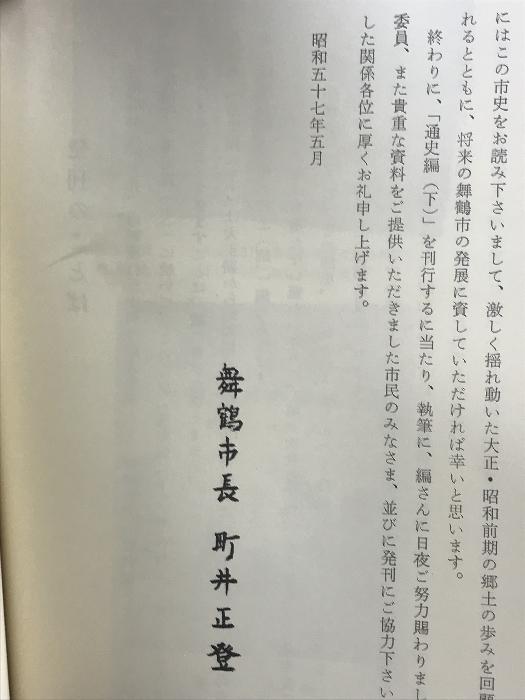 にはこの市史をお読み下さいまして、激しく揺れ動いた大正・昭和前期の郷土の歩みを回顧
れるとともに、将来の舞鶴市の発展に資していただければ幸いと思います。
終わりに、「通史編（下）」を刊行するに当たり、執筆に、編さんに日夜ご努力賜わりまし
委員、また貴重な資料をご提供いただきました市民のみなさま、並びに発刊にご協力下さい
した関係各位に厚くお礼申し上げます。
昭和五十七年五月
舞鶴市長 町井正登